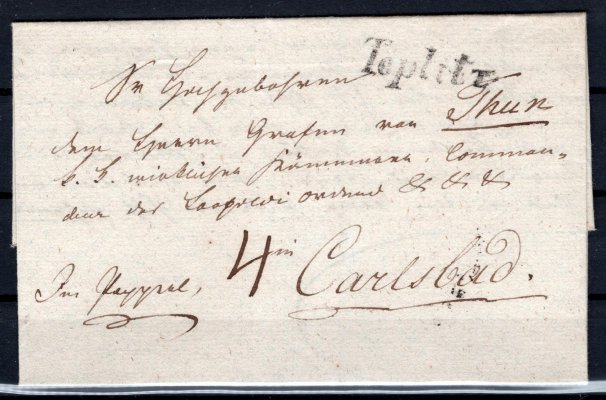 Teplitz
Sr Hochgebohren
dem Herrn Grafen von Thun
k. k. wirklichen Kämmerer, Comman=
deur des Leopoldi Ordens & & &
4 in Carlsbad.
Im